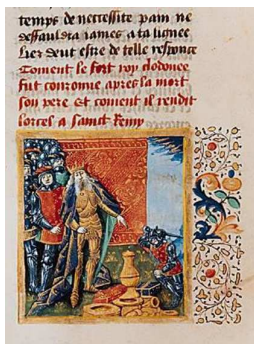 temps de necessite pain ne
deffauldra iames a ta lignee
Lier deut estre de telle responce
Coment le fort roy clodouee
fut couronne apres la mort
son pere Et coment il rendit
lorces a sainct Remy